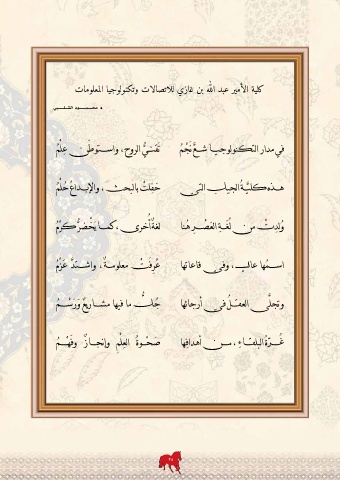 كلية الأمير عبد الله بن غازي للاتصالات وتكنولوجيا المعلومات
في مدار التكنولوجيا شعَّ نَجْمُ تَقنيُّ الروح، واستوطن عِلْمُ
هذه كليةُ الجيل التي حفلت بالبحث، والإبداعُ حُلْمُ
وُلِدتْ من لُغَةِ العَصْرِ هُنا لغةٌ أُخرى، كما يَخْضَرُّ كَرْمُ
اسمُها عالٍ، وفي قاعاتها عُرِفَتْ معلومةٌ، واشتدَّ عَزْمُ
وتجلَّى العقلُ في أرجائها جُلُّ ما فيها مشاريعُ ورَسْمُ
غُرّةُ البلقاءِ، من أهدافِها صَحْوةُ العِلْمِ وإنجازٌ وفَهْمُ